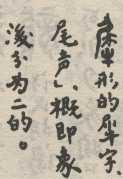 形的犀字、
尾声」、概即象
後分为二的。